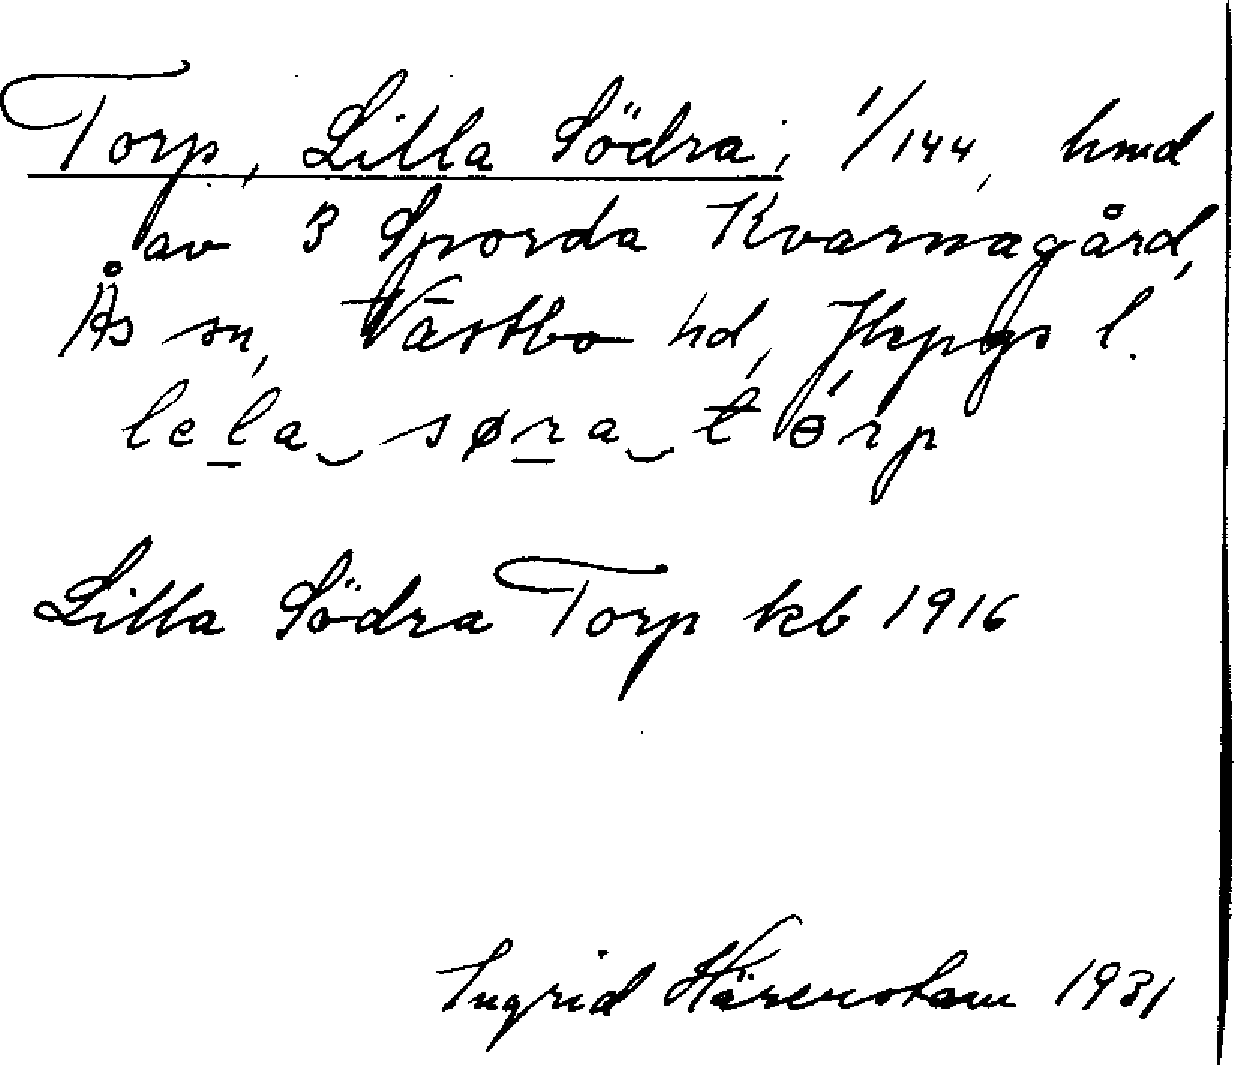 Torp, Lilla Södra; 1/144, hmd
av 3 Sporda Kvarnagård,
Ås sn, Västbo hd, Jkpgs l.
lela‿søra‿tɵ́rp
Lilla Södra Torp kb 1916
Ingrid Härenstam 1931